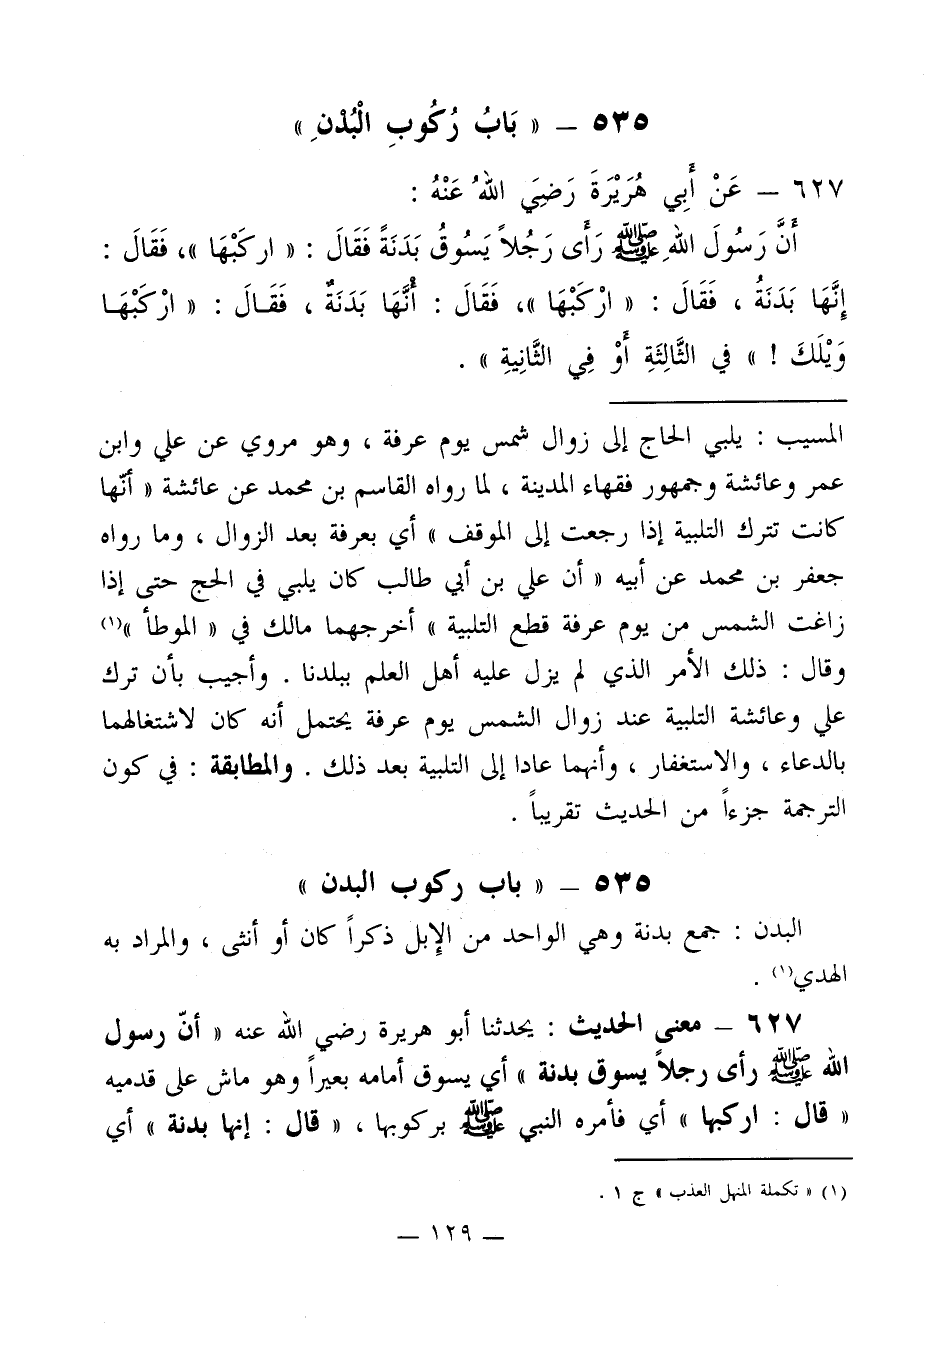 ٥٣٥ – « بَابُ رُكُوبِ الْبُدْنِ »
٦٢٧ – عَنْ أَبِي هُرَيْرَةَ رَضِيَ اللهُ عَنْهُ :
أَنَّ رَسُولَ اللهِ ﷺ رَأَى رَجُلاً يَسُوقُ بَدَنَةً فَقَالَ : « اركَبْهَا »، فَقَالَ :
إِنَّهَا بَدَنَةُ ، فَقَالَ : « ارْكَبْهَا »، فَقَالَ : أُنَّهَا بَدَنَةٌ ، فَقَـالَ : « ارْكَبْهَـا
وَيْلَكَ ! » في الثَّالِثَةِ أَوْ فِي الثَّانِيةِ » .
المسيب : يلبي الحاج إلى زوال شمس يوم عرفة ، وهو مروي عن علي وابن
عمر وعائشة وجمهور فقهاء المدينة ، لما رواه القاسم بن محمد عن عائشة « أنّها
كانت تترك التلبية إذا رجعت إلى الموقف » أي بعرفة بعد الزوال ، وما رواه
جعفر بن محمد عن أبيه « أن علي بن أبي طالب كان يلبي في الحج حتى إذا
زاغت الشمس من يوم عرفة قطع التلبية » أخرجهما مالك في « الموطأ »(١)
وقال : ذلك الأمر الذي لم يزل عليه أهل العلم ببلدنا . وأجيب بأن ترك
علي وعائشة التلبية عند زوال الشمس يوم عرفة يحتمل أنه كان لاشتغالهما
بالدعاء ، والاستغفار ، وأنهما عادا إلى التلبية بعد ذلك . والمطابقة : في كون
الترجمة جزءاً من الحديث تقريباً .
٥٣٥ – « باب ركوب البدن »
البدن : جمع بدنة وهي الواحد من الإبل ذكراً كان أو أنثى ، والمراد به
الهدي(١) .
٦٢٧ – معنى الحديث : يحدثنا أبو هريرة رضي الله عنه « أنّ رسول
الله ﷺ رأى رجلاً يسوق بدنة » أي يسوق أمامه بعيراً وهو ماش على قدميه
« قال : اركبها » أي فأمره النبي ﷺ بركوبها ، « قال : إنها بدنة » أي
(١) « تكملة المنهل العذب » ج ١ .
– ١٢٩ –